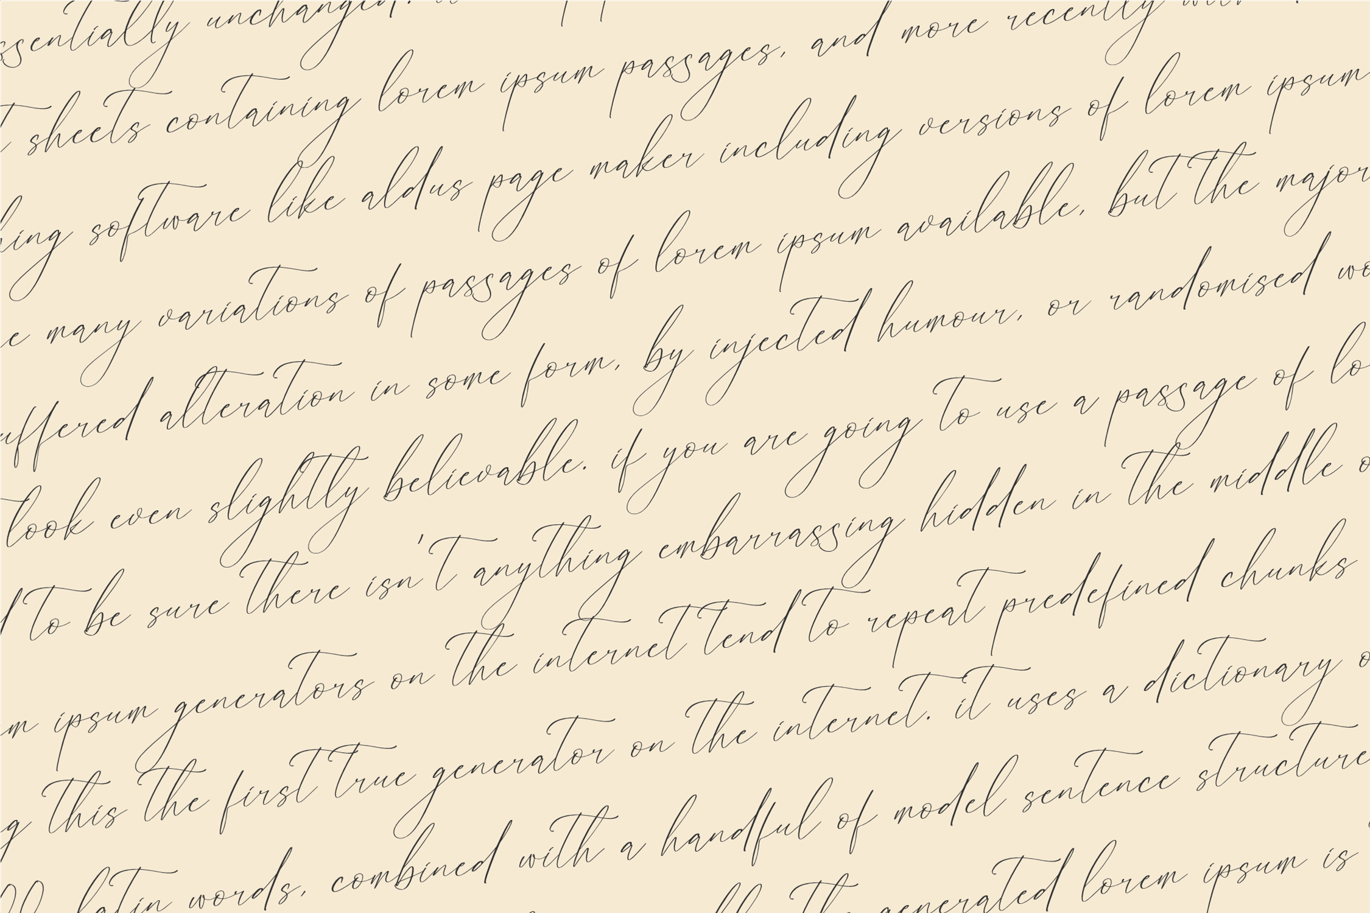 ssentially unchanged.
t sheets containing lorem ipsum passages, and more recently
hing software like aldus page maker including versions of lorem ipsum
e many variations of passages of lorem ipsum available, but the major
uffered alteration in some form, by injected humour, or randomised wo
look even slightly believable. if you are going to use a passage of lo
d to be sure there isn't anything embarrassing hidden in the middle o
m ipsum generators on the internet tend to repeat predefined chunks
g this the first true generator on the internet. it uses a dictionary o
00 latin words, combined with a handful of model sentence structure
the generated lorem ipsum is